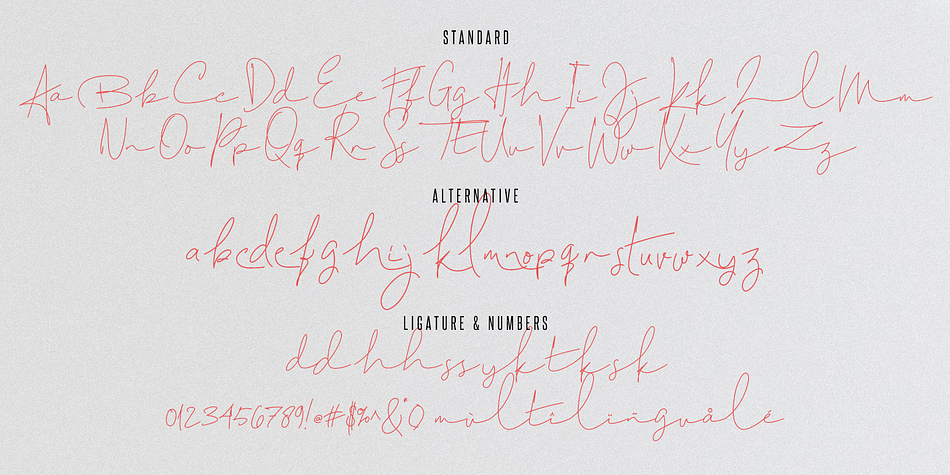 STANDARD
Aa Bb Cc Dd Ee Ff Gg Hh Ii Jj Kk Ll Mm
Nn Oo Pp Qq Rr Ss Tt Uu Vv Ww Xx Yy Zz
ALTERNATIVE
abcdefghijklmnopqrstuvwxyz
LIGATURE & NUMBERS
dd hh ss yk tk sk
0123456789!@#$%^&()
mùltîlingüåle